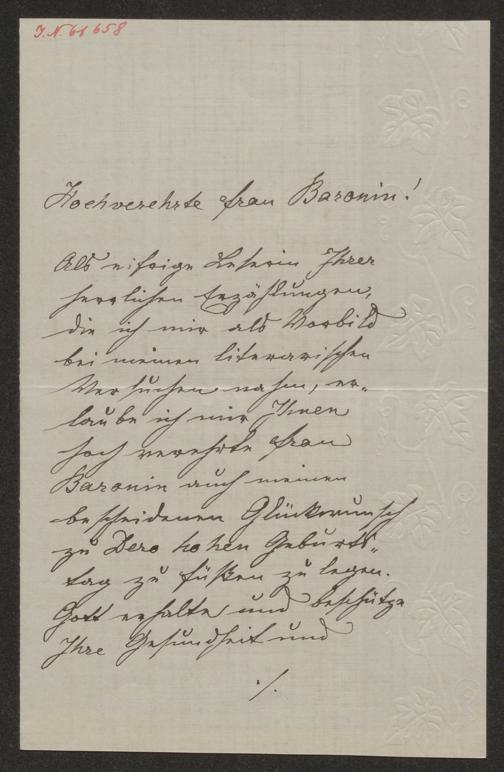 I.N. 61 658
Hochverehrte Frau Baronin!
Als eifrige Leserin Ihrer
herrlichen Erzählungen,
die ich mir als Vorbild
bei meinen literarischen
Versuchen nahm, er-
laube ich mir Ihnen
hoch verehrte Frau
Baronin auch meinen
bescheidenen Glückwunsch
zu Dero hohen Geburts-
tag zu Füßen zu legen.
Gott erhalte und beschütze
Ihre Gesundheit und
./.